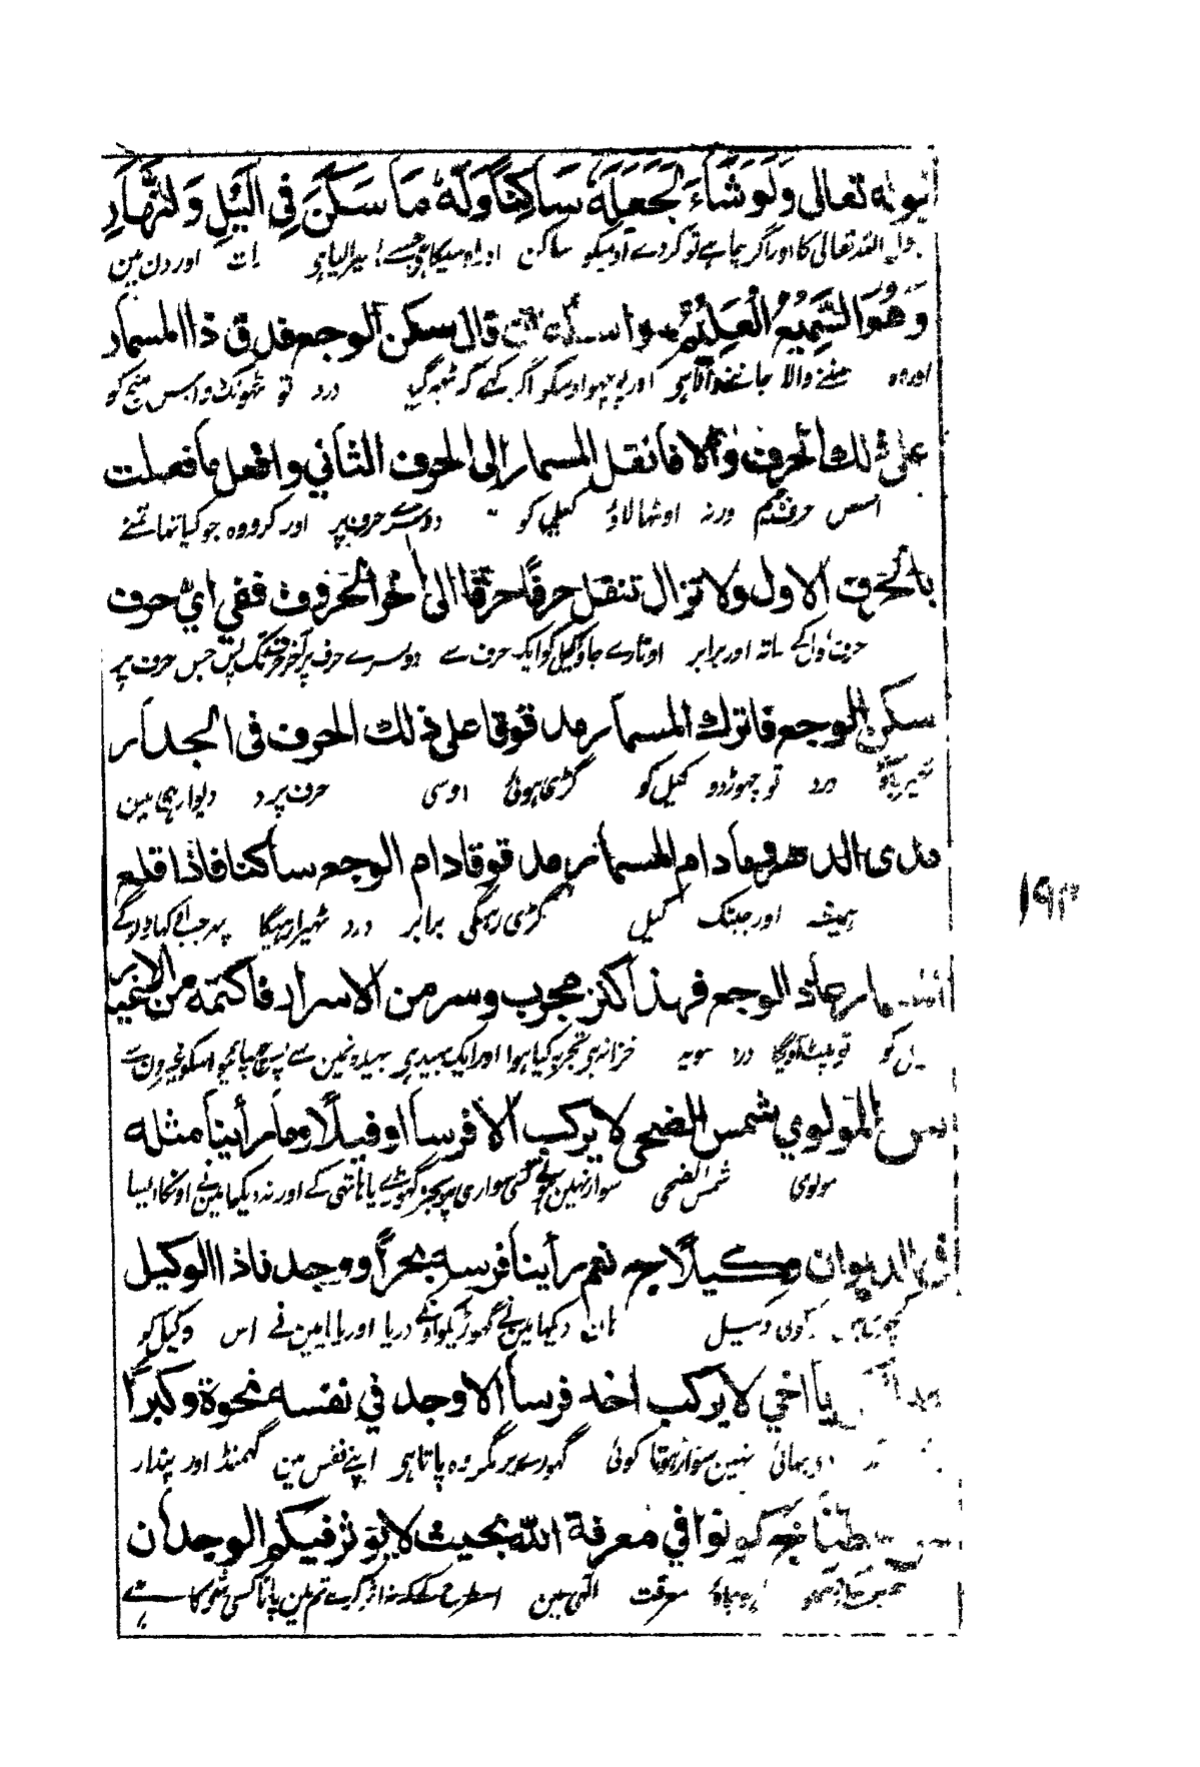 تعالى وَلَوْ شَاءَ لَجَعَلَهُ سَاكِنًا وَلَهُ مَا سَكَنَ فِي الَّيْلِ وَالنَّهَارِ
الله تعالی کا اور اگر چاہے تو کردے اوسکو ساکن اور اوسیکا ہی جسے بسیرا لیا ہی رات اور دن مین
وَهُوَ السَّمِيْعُ الْعَلِيْمُ قال سكن الوجع فدق ذا المسمار
اور وہ سننے والا جاننے والا ہی اور پوچھو اوسکو اگر کہے کہ ٹھہر گیا درد تو ٹھونک دو اس میخ کو
على ذلك الحرف والا فانقل المسمار الى الحرف الثاني وافعل ما فعلت
اس حرف ورنہ اوٹھالاؤ کیل کو دوسرے حرف پر اور کرو وہ جو کیا تھا تمنے
بالحرف الاول ولا تزال تنقل حرفًا حرفًا الى اخر الحروف ففي اي حرف
حرف اول کے ساتہ اور برابر اوتارے جاؤ کیل کو ایک حرف سے دوسرے حرف پر آخر حرف تک پس جس حرف پر
سكن الوجع فاترك المسمار مدقوقا على ذلك الحرف فى الجدار
درد تو چھوڑدو کیل کو گڑی ہوئی اوسی حرف پر دیوار ہی مین
مدى الدهر فما دام المسمار مدقوقا دام الوجع ساكنا فاذا قلع
ہمیشہ اور جبتک کیل گڑی رہیگی برابر درد ٹھیرا رہیگا پھر جب اوکھاڑوگے
المسمار عاد الوجع فهذا كنز مجرب وسر من الاسرار فاكتمه من الاغيار
کو تو پلٹیگا درد سو یہ خزانہ ہی تجربہ کیا ہوا اور ایک بھید ہی بھیدونمین سے پس چھپائیو اسکو غیرون سے
المولوي شمس الضحى لا يركب الا فرسا او فيلًا وما رأينا مثله
مولوی شمس الضحی سوار نہین ہوتے کسی سواری پر بجز گھوڑے یا ہاتھی کے اور نہ دیکھا مین نے اونکا ایسا
الديوان وكيلًا ج نعم رأينا فرسه بحرًا ووجد ناذا الوكيل
کوئی وکیل ہان دیکھا مین نے گھوڑیکو اونکے دریا اور پایا مین نے اس وکیل کو
يا اخي لا يركب احد فرسا الا وجد في نفسه نخوة وكبرًا
بھائی نہین سوار ہوتا کوئی گھوڑے پر مگر وہ پاتا ہی اپنے نفس مین گھمنڈ اور پندار
كونوا في معرفة الله بحيث لا يؤثر فيكم الوجدان
معرفت الٰہی مین اسطرح کہ نہ اثر کرے تم مین پانا کسی شی کا
۱۹۳